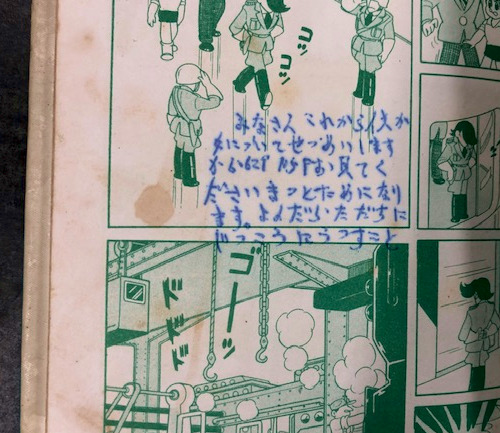 コツ
コツ
みなさん これから
について せつめいします
お見てく
ださい きっとためになり
ます。よんだらいただちに
じっこうにうつすこと
ゴーッ
ドドド